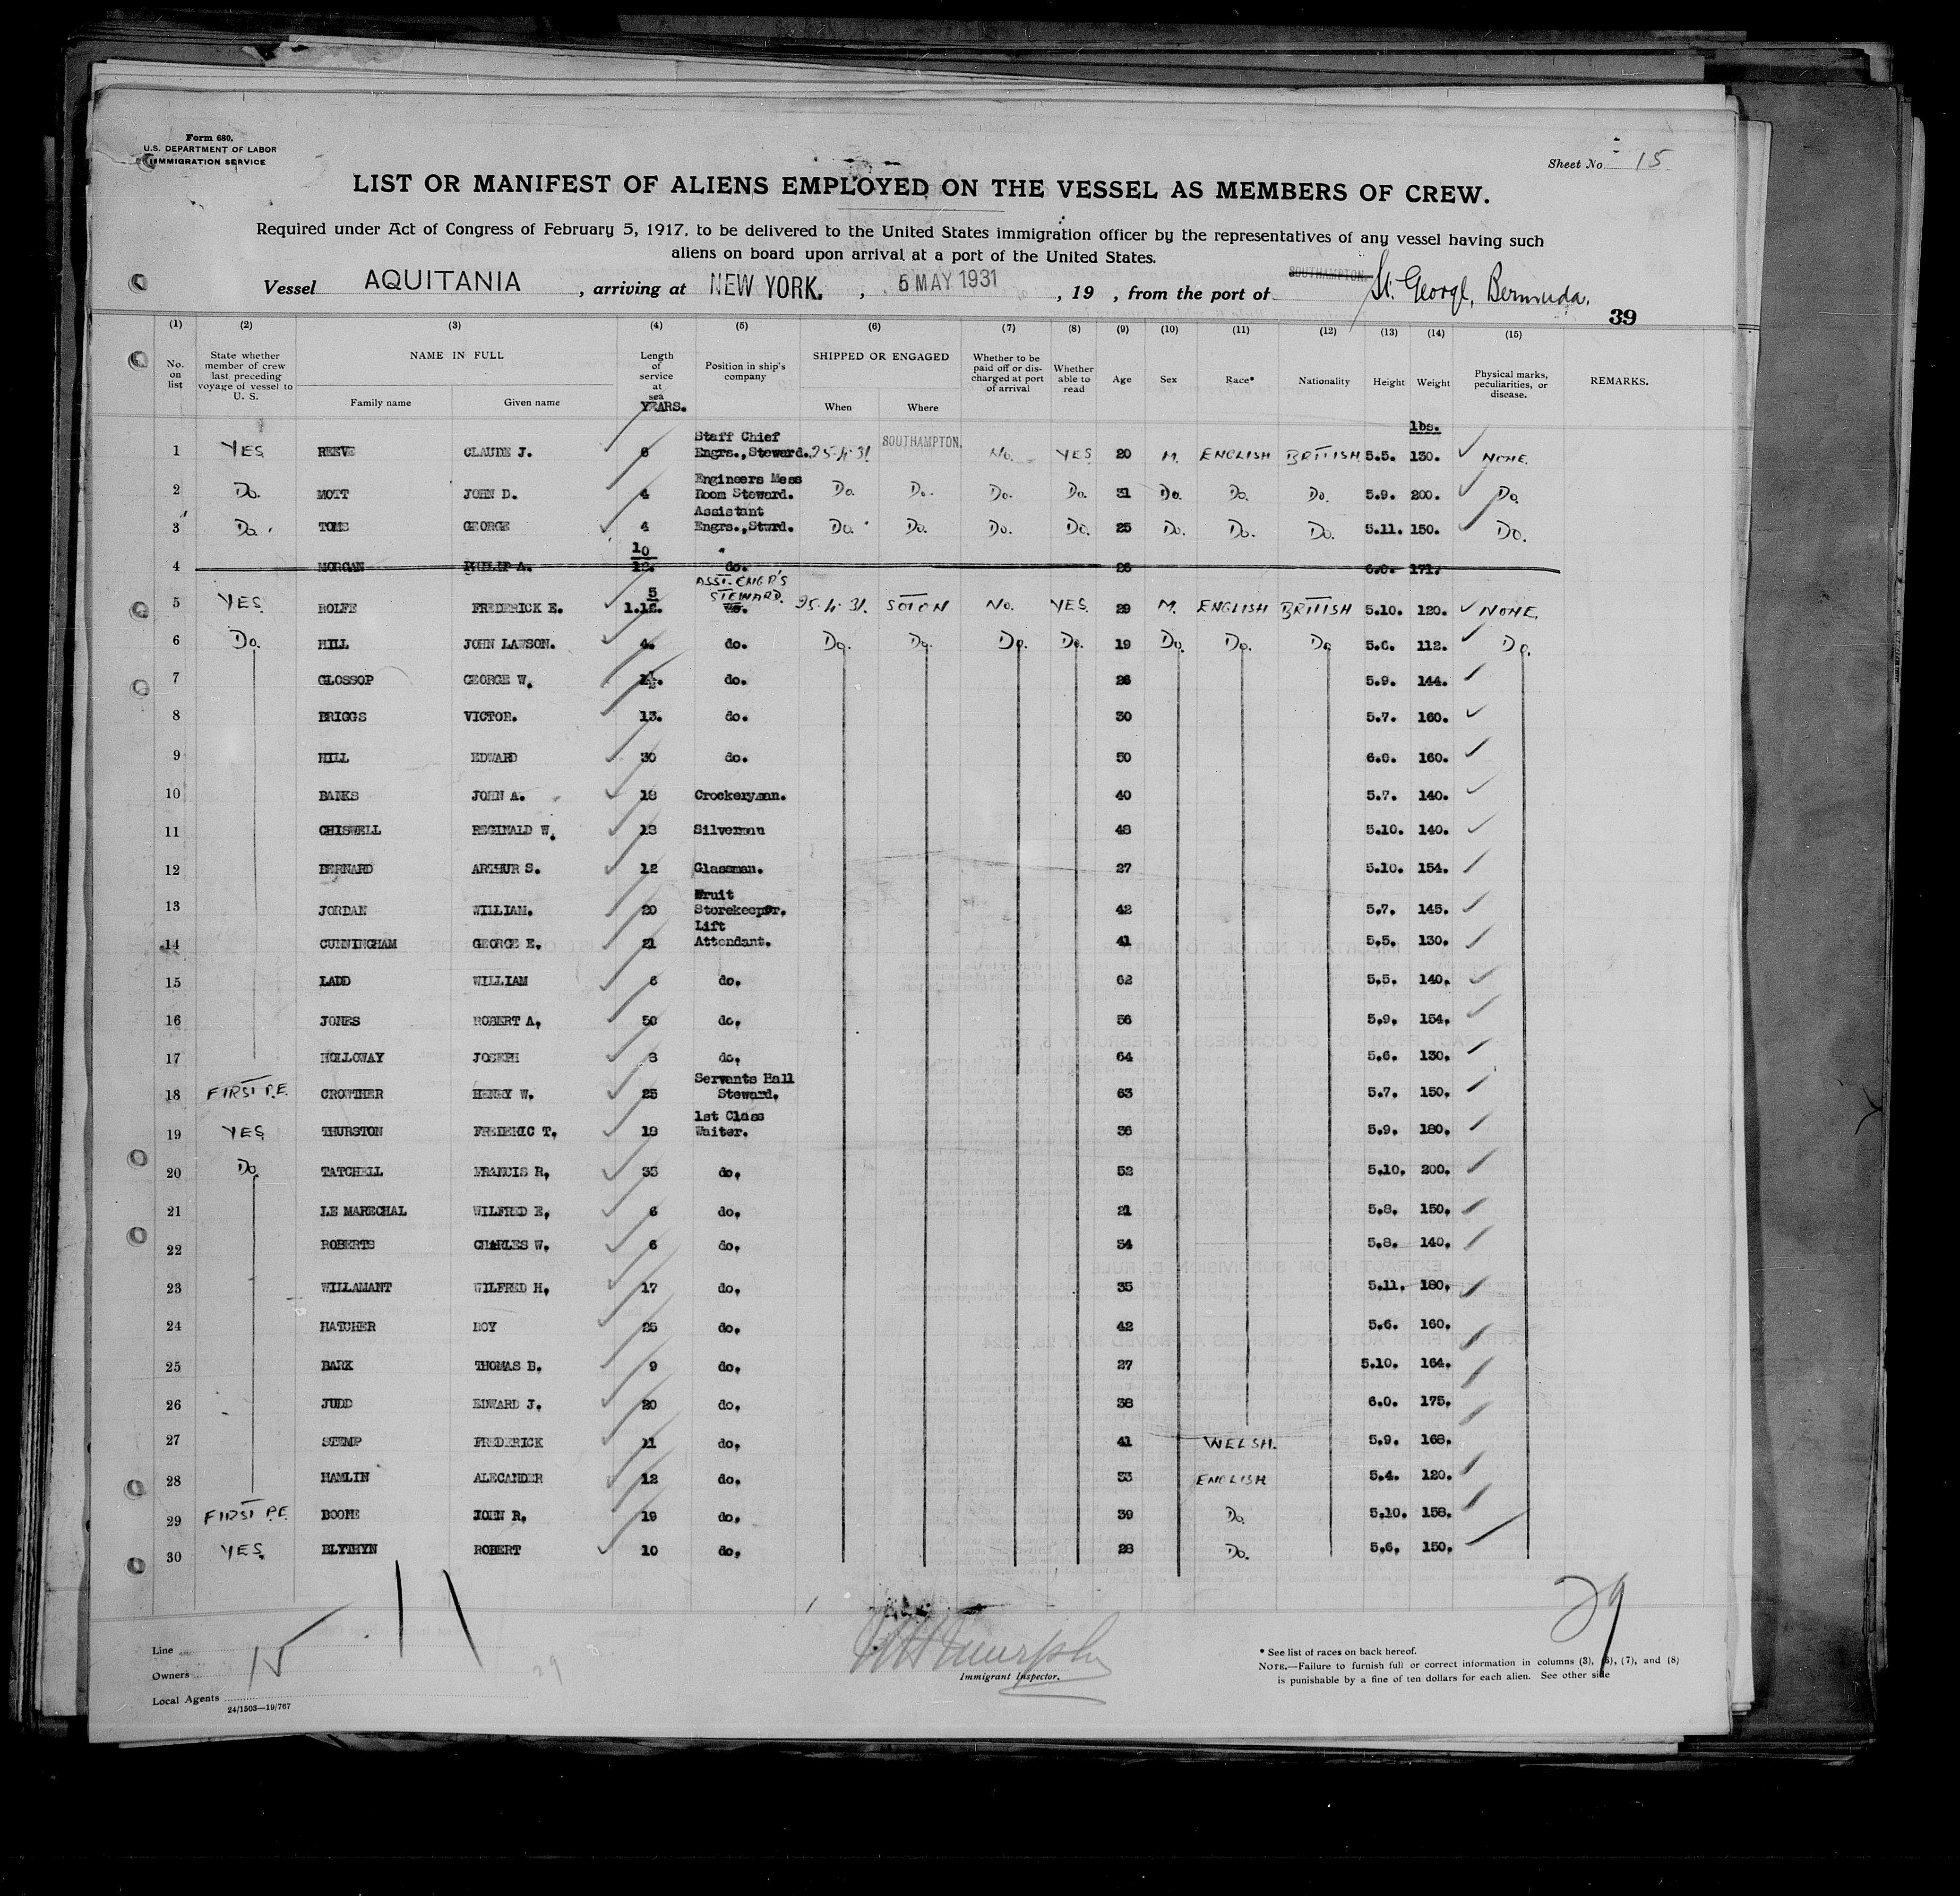 Form 680.
U.S. DEPARTMENT OF LABOR
IMMIGRATION SERVICE
Sheet No. 15
LIST OR MANIFEST OF ALIENS EMPLOYED ON THE VESSEL AS MEMBERS OF CREW.
Required under Act of Congress of February 5, 1917, to be delivered to the United States immigration officer by the representatives of any vessel having such
aliens on board upon arrival at a port of the United States.
Vessel AQUITANIA , arriving at NEW YORK. , 5 MAY 1931 , 19 , from the port of SOUTHAMPTON. St. George, Bermuda.
39
(1) (2) (3) (4) (5) (6) (7) (8) (9) (10) (11) (12) (13) (14) (15)
No. on list State whether member of crew last preceding voyage of vessel to U. S. NAME IN FULL Family name Given name Length of service at sea YEARS. Position in ship's company SHIPPED OR ENGAGED When Where Whether to be paid off or discharged at port of arrival Whether able to read Age Sex Race* Nationality Height Weight Physical marks, peculiarities, or disease. REMARKS.
lbs.
1 YES REEVE CLAUDE J. 6 Staff Chief Engrs., Steward. 25.4.31 SOUTHAMPTON. No. YES 20 M. ENGLISH BRITISH 5.5. 130. NONE.
2 Do. MOTT JOHN D. 4 Engineers Mess Room Steward. Do. Do. Do. Do. 31 Do. Do. Do. 5.9. 200. Do.
3 Do. TOMS GEORGE 4 Assistant Engrs., Sturd. Do. Do. Do. Do. 25 Do. Do. Do. 5.11. 150. Do.
4 MORGAN PHILIP A. 10/12. do. 26 6.0. 171.
5 YES ROLFE FREDERICK E. 1.5/12. ASST. ENGR'S STEWARD. 25.4.31. SOTON No. YES. 29 M. ENGLISH BRITISH 5.10. 120. NONE.
6 Do. HILL JOHN LAWSON. 4. do. Do. Do. Do. Do. 19 Do. Do. Do 5.6. 112. Do.
7 GLOSSOP GEORGE W. do. 26 5.9. 144.
8 BRIGGS VICTOR. 13. do. 30 5.7. 160.
9 HILL EDWARD 30 do. 50 6.0. 160.
10 BANKS JOHN A. 18 Crockeryman. 40 5.7. 140.
11 CHISWELL REGINALD W. Silverman 48 5.10. 140.
12 BERNARD ARTHUR S. 12 Glassman. 27 5.10. 154.
13 JORDAN WILLIAM. 20 Fruit Storekeeper. 42 5.7. 145.
14 CUNNINGHAM GEORGE E. 21 Lift Attendant. 41 5.5. 130.
15 LADD WILLIAM 6 do. 62 5.5. 140.
16 JONES ROBERT A. 50 do. 56 5.9. 154.
17 HOLLOWAY JOSEPH 8 do. 64 5.6. 130.
18 FIRST P.E. CROWTHER HENRY W. 25 Servants Hall Steward. 63 5.7. 150.
19 YES THURSTON FREDERIC T. 18 1st Class Waiter. 36 5.9. 180.
20 Do. TATCHELL FRANCIS R. 35 do. 52 5.10. 200.
21 LE MARECHAL WILFRED E. 6 do. 21 5.8. 150.
22 ROBERTS CHARLES W. 6 do. 34 5.8. 140.
23 WILLAMANT WILFRED H. 17 do. 35 5.11. 180.
24 HATCHER ROY 25 do. 42 5.6. 160.
25 BARK THOMAS B. 9 do. 27 5.10. 164.
26 JUDD EDWARD J. 20 do. 38 6.0. 175.
27 STEMP FREDERICK 11 do. 41 WELSH. 5.9. 168.
28 HAMLIN ALECANDER 12 do. 33 ENGLISH 5.4. 120.
29 FIRST P.E. BOONE JOHN R. 19 do. 39 Do. 5.10. 158.
30 YES. BLYTHYN ROBERT 10 do. 28 Do. 5.6. 150.
29
Line
Owners 15 29
Local Agents
24/1503—19/767
Murphy
Immigrant Inspector.
* See list of races on back hereof.
NOTE.—Failure to furnish full or correct information in columns (3), (6), (7), and (8)
is punishable by a fine of ten dollars for each alien. See other side